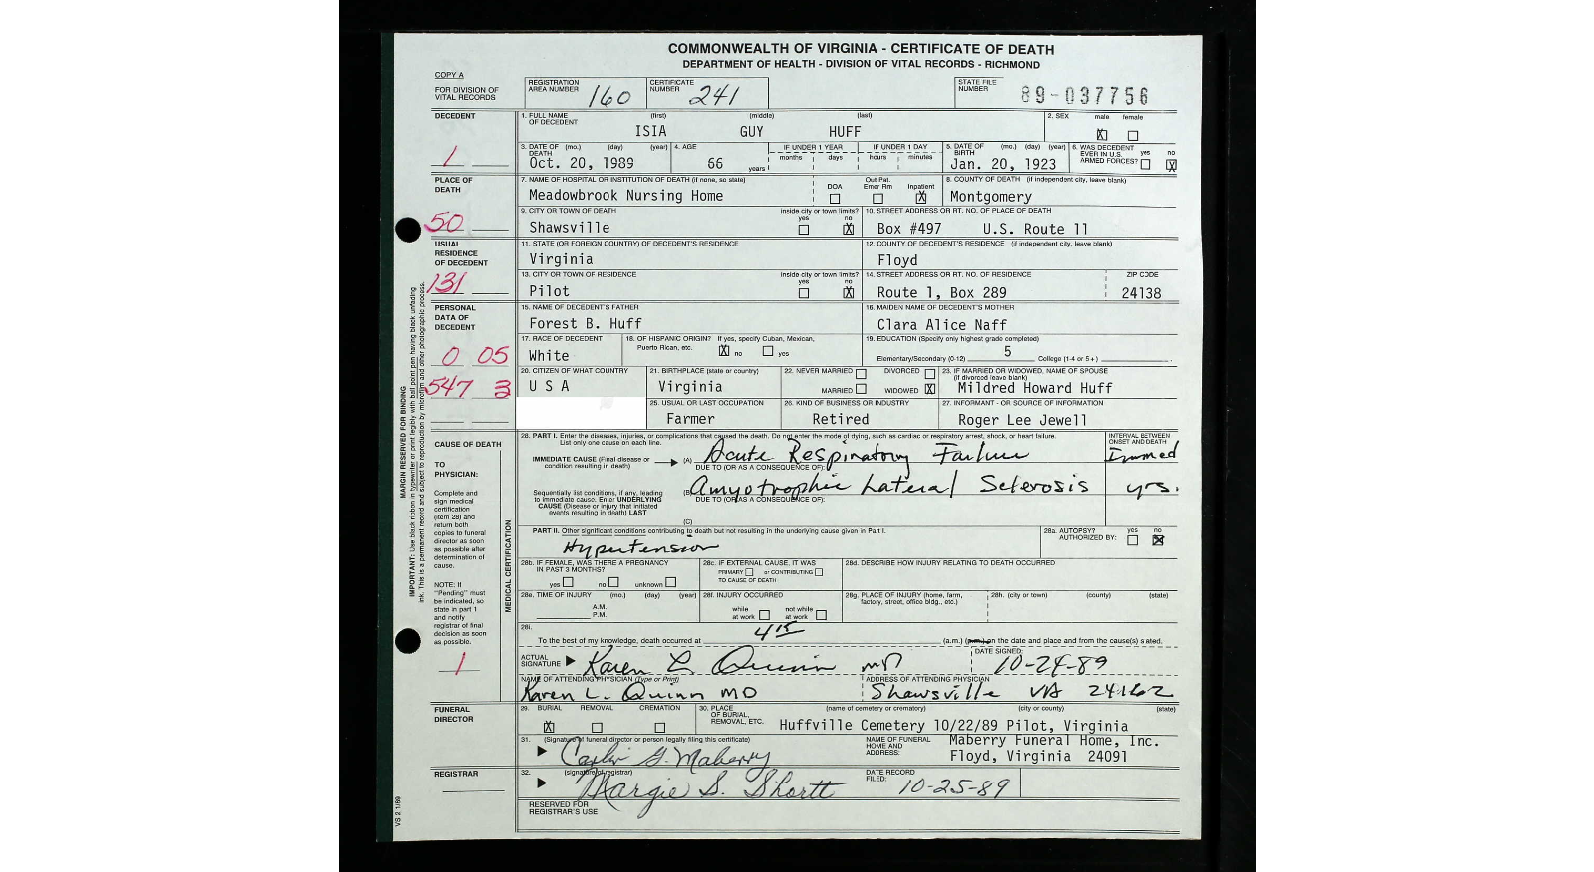 COMMONWEALTH OF VIRGINIA - CERTIFICATE OF DEATH
DEPARTMENT OF HEALTH - DIVISION OF VITAL RECORDS - RICHMOND
COPY A
FOR DIVISION OF VITAL RECORDS
REGISTRATION AREA NUMBER 160
CERTIFICATE NUMBER 241
STATE FILE NUMBER 89-037756
DECEDENT
1. FULL NAME OF DECEDENT (first) (middle) (last)
ISIA GUY HUFF
2. SEX male X female
1
3. DATE OF DEATH (mo.) (day) (year)
Oct. 20, 1989
4. AGE 66 years
IF UNDER 1 YEAR months days
IF UNDER 1 DAY hours minutes
5. DATE OF BIRTH (mo.) (day) (year)
Jan. 20, 1923
6. WAS DECEDENT EVER IN U.S. ARMED FORCES? yes no X
PLACE OF DEATH
50
7. NAME OF HOSPITAL OR INSTITUTION OF DEATH (if none, so state)
Meadowbrook Nursing Home
DOA Out Pat. Emer Rm Inpatient X
8. COUNTY OF DEATH (if independent city, leave blank)
Montgomery
9. CITY OR TOWN OF DEATH
Shawsville
inside city or town limits? yes no X
10. STREET ADDRESS OR RT. NO. OF PLACE OF DEATH
Box #497 U.S. Route 11
USUAL RESIDENCE OF DECEDENT
131
11. STATE (OR FOREIGN COUNTRY) OF DECEDENT'S RESIDENCE
Virginia
12. COUNTY OF DECEDENT'S RESIDENCE (if independent city, leave blank)
Floyd
13. CITY OR TOWN OF RESIDENCE
Pilot
inside city or town limits? yes no X
14. STREET ADDRESS OR RT. NO. OF RESIDENCE
Route 1, Box 289
ZIP CODE
24138
PERSONAL DATA OF DECEDENT
0 05
547 3
15. NAME OF DECEDENT'S FATHER
Forest B. Huff
16. MAIDEN NAME OF DECEDENT'S MOTHER
Clara Alice Naff
17. RACE OF DECEDENT
White
18. OF HISPANIC ORIGIN? If yes, specify Cuban, Mexican, Puerto Rican, etc. X no yes
19. EDUCATION (Specify only highest grade completed)
Elementary/Secondary (0-12) 5 College (1-4 or 5+)
20. CITIZEN OF WHAT COUNTRY
U S A
21. BIRTHPLACE (state or country)
Virginia
22. NEVER MARRIED DIVORCED
MARRIED WIDOWED X
23. IF MARRIED OR WIDOWED, NAME OF SPOUSE (if divorced leave blank)
Mildred Howard Huff
25. USUAL OR LAST OCCUPATION
Farmer
26. KIND OF BUSINESS OR INDUSTRY
Retired
27. INFORMANT - OR SOURCE OF INFORMATION
Roger Lee Jewell
MARGIN RESERVED FOR BINDING
IMPORTANT: Use black ribbon in typewriter or print legibly with ball point pen having black unfading
ink. This is a permanent record and subject to reproduction by microfilm and other photographic process.
CAUSE OF DEATH
TO PHYSICIAN:
Complete and sign medical certification (item 28) and return both copies to funeral director as soon as possible after determination of cause.
NOTE: If "Pending" must be indicated, so state in part 1 and notify registrar of final decision as soon as possible.
1
MEDICAL CERTIFICATION
28. PART I. Enter the diseases, injuries, or complications that caused the death. Do not enter the mode of dying, such as cardiac or respiratory arrest, shock, or heart failure.
List only one cause on each line.
INTERVAL BETWEEN ONSET AND DEATH
IMMEDIATE CAUSE (Final disease or condition resulting in death) (A) Acute Respiratory Failure Immed
DUE TO (OR AS A CONSEQUENCE OF):
Sequentially list conditions, if any, leading to immediate cause. Enter UNDERLYING CAUSE (Disease or injury that initiated events resulting in death) LAST
(B) Amyotrophic Lateral Sclerosis yrs.
DUE TO (OR AS A CONSEQUENCE OF):
(C)
PART II. Other significant conditions contributing to death but not resulting in the underlying cause given in Part I.
Hypertension
28a. AUTOPSY? AUTHORIZED BY: yes no X
28b. IF FEMALE, WAS THERE A PREGNANCY IN PAST 3 MONTHS?
yes no unknown
28c. IF EXTERNAL CAUSE, IT WAS
PRIMARY or CONTRIBUTING
TO CAUSE OF DEATH
28d. DESCRIBE HOW INJURY RELATING TO DEATH OCCURRED
28e. TIME OF INJURY (mo.) (day) (year)
A.M.
P.M.
28f. INJURY OCCURRED
while at work not while at work
28g. PLACE OF INJURY (home, farm, factory, street, office bldg., etc.)
28h. (city or town) (county) (state)
28i.
To the best of my knowledge, death occurred at 4 15 (a.m.) (p.m.) on the date and place and from the cause(s) stated.
ACTUAL SIGNATURE Karen L. Quinn MD
DATE SIGNED: 10-24-89
NAME OF ATTENDING PHYSICIAN (Type or Print)
Karen L. Quinn MD
ADDRESS OF ATTENDING PHYSICIAN
Shawsville VA 24162
FUNERAL DIRECTOR
29. BURIAL X REMOVAL CREMATION
30. PLACE OF BURIAL, REMOVAL, ETC. (name of cemetery or crematory) (city or county) (state)
Huffville Cemetery 10/22/89 Pilot, Virginia
31. (Signature of funeral director or person legally filing this certificate)
G. Maberry
NAME OF FUNERAL HOME AND ADDRESS:
Maberry Funeral Home, Inc.
Floyd, Virginia 24091
REGISTRAR
32. (signature of registrar)
Margie S. Shortt
DATE RECORD FILED: 10-25-89
RESERVED FOR REGISTRAR'S USE
VS 2 1/89